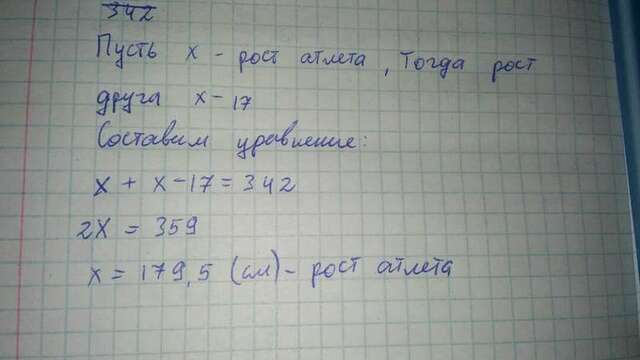 342
Пусть х - рост атлета, Тогда рост
друга х-17
Составим уравнение:
х + х-17=342
2х = 359
х = 179,5 (см) - рост атлета